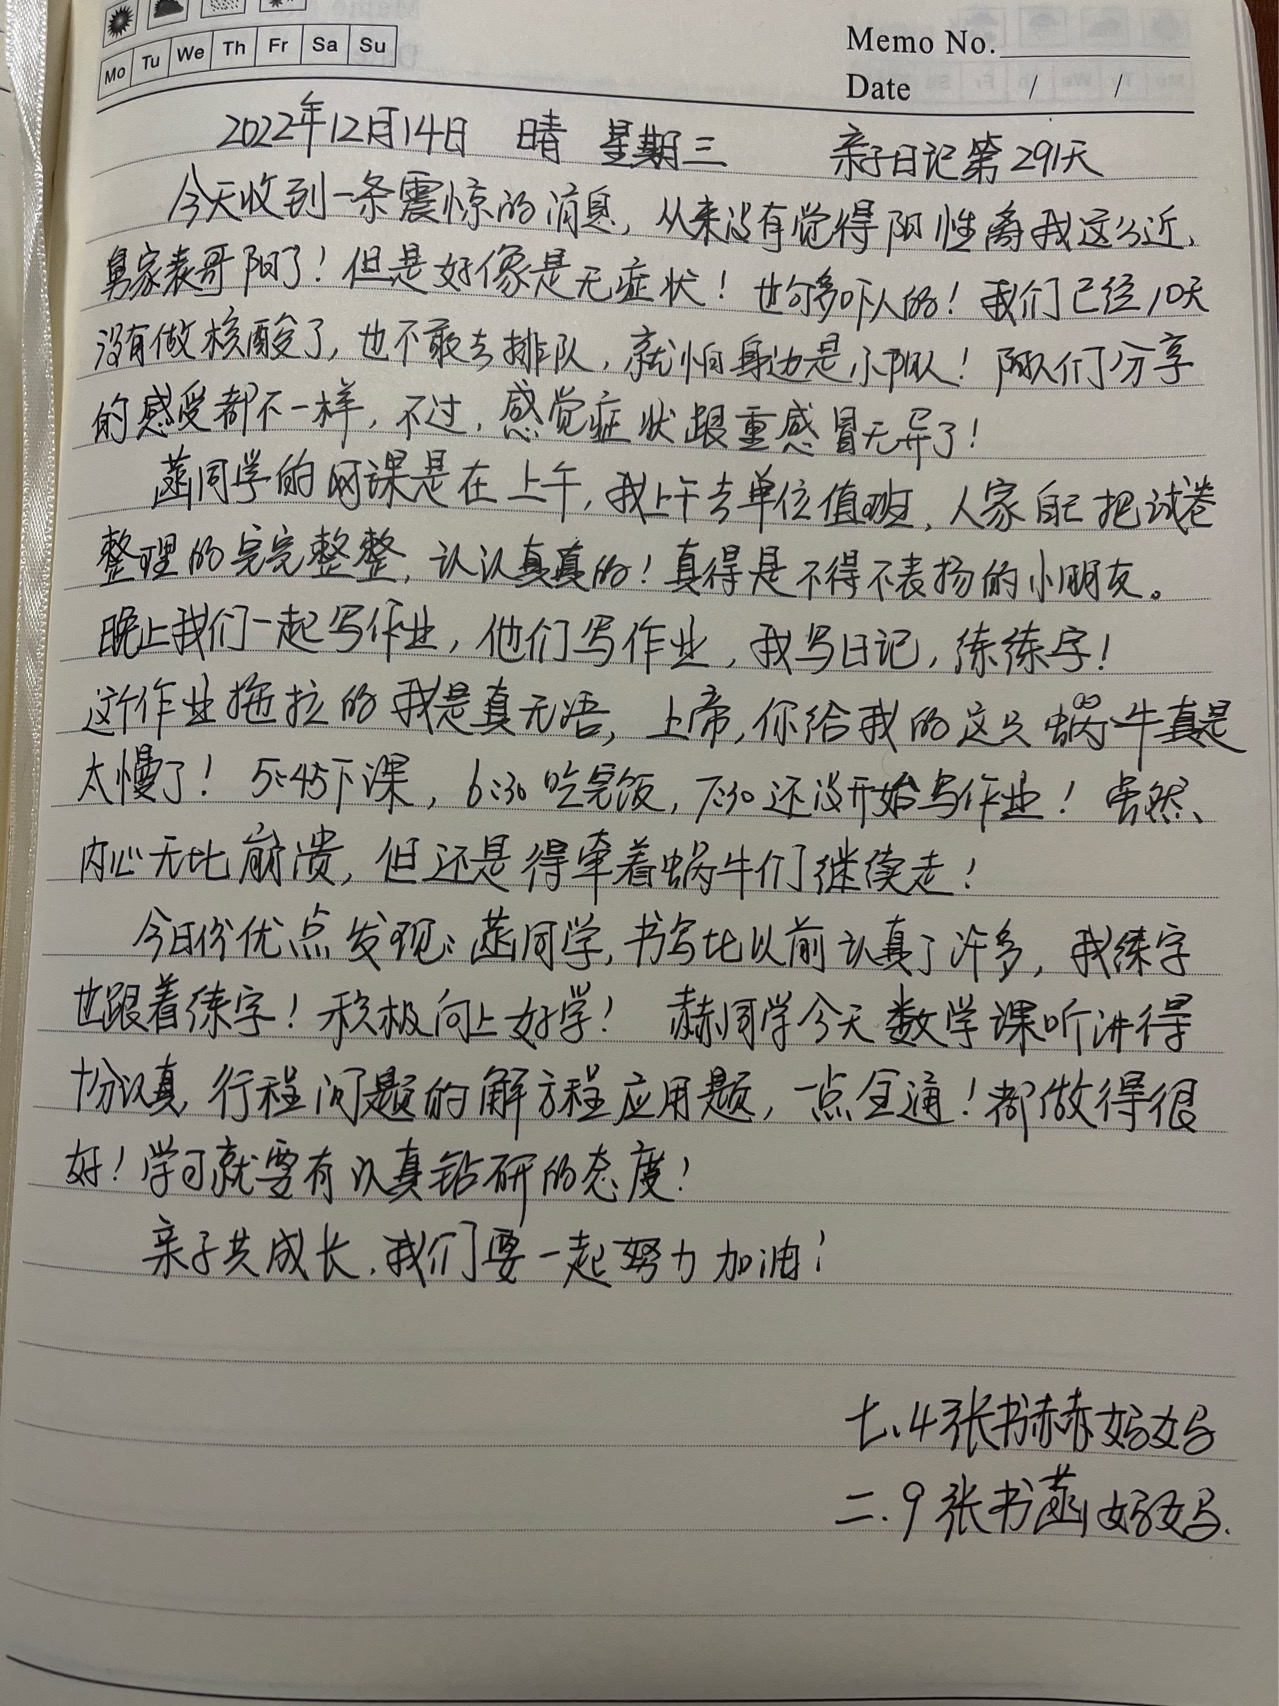 Mo Tu We Th Fr Sa Su
Memo No.
Date / /
2022年12月14日 晴 星期三 亲子日记第291天
今天收到一条震惊的消息,从来没有觉得阳性离我这么近,
舅家表哥阳了!但是好像是无症状!也够多吓人的!我们已经10天
没有做核酸了,也不敢去排队,就怕身边是小阳人!阳人们分享
的感受都不一样,不过,感觉症状跟重感冒无异了!
菡同学的网课是在上午,我上午去单位值班,人家自己把试卷
整理的完完整整,认认真真的!真得是不得不表扬的小朋友。
晚上我们一起写作业,他们写作业,我写日记,练练字!
这个作业拖拉的我是真无语,上帝,你给我的这只蜗牛真是
太慢了!5:45下课,6:30吃完饭,7:30还没开始写作业!虽然、
内心无比崩溃,但还是得牵着蜗牛们继续走!
今日份优点发现:菡同学,书写比以前认真了许多,我练字
也跟着练字!积极向上好学!赫同学今天数学课听讲得
十分认真,行程问题的解方程应用题,一点全通!都做得很
好!学习就要有认真钻研的态度!
亲子共成长,我们要一起努力加油!
七.4张书赫妈妈
二.9张书菡妈妈.